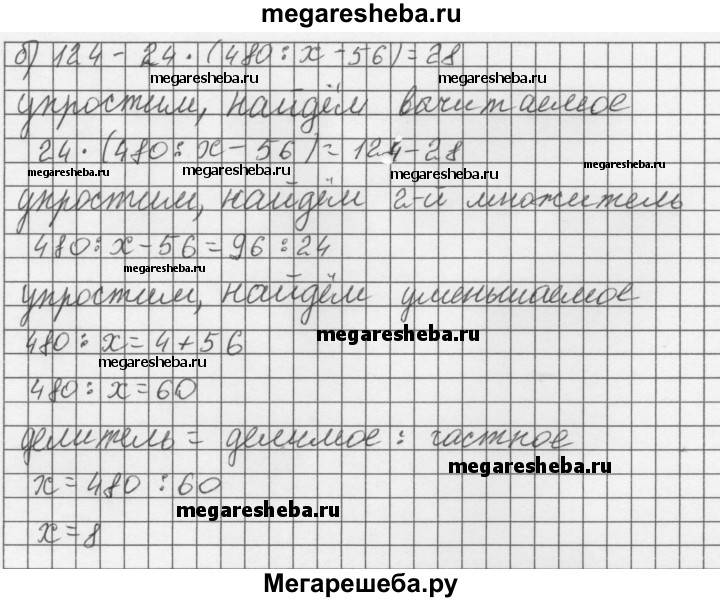 megaresheba.ru
б) 124 - 24 · (480 : х - 56) = 28
megaresheba.ru megaresheba.ru
упростим, найдём вычитаемое
24 · (480 : х - 56) = 124 - 28
megaresheba.ru megaresheba.ru megaresheba.ru megaresheba.ru
упростим, найдём 2-й множитель
480 : х - 56 = 96 : 24
megaresheba.ru
упростим, найдём уменьшаемое
megaresheba.ru
480 : х = 4 + 56
megaresheba.ru
480 : х = 60
делитель = делимое : частное
megaresheba.ru
х = 480 : 60
megaresheba.ru
х = 8
Мегарешеба.ру